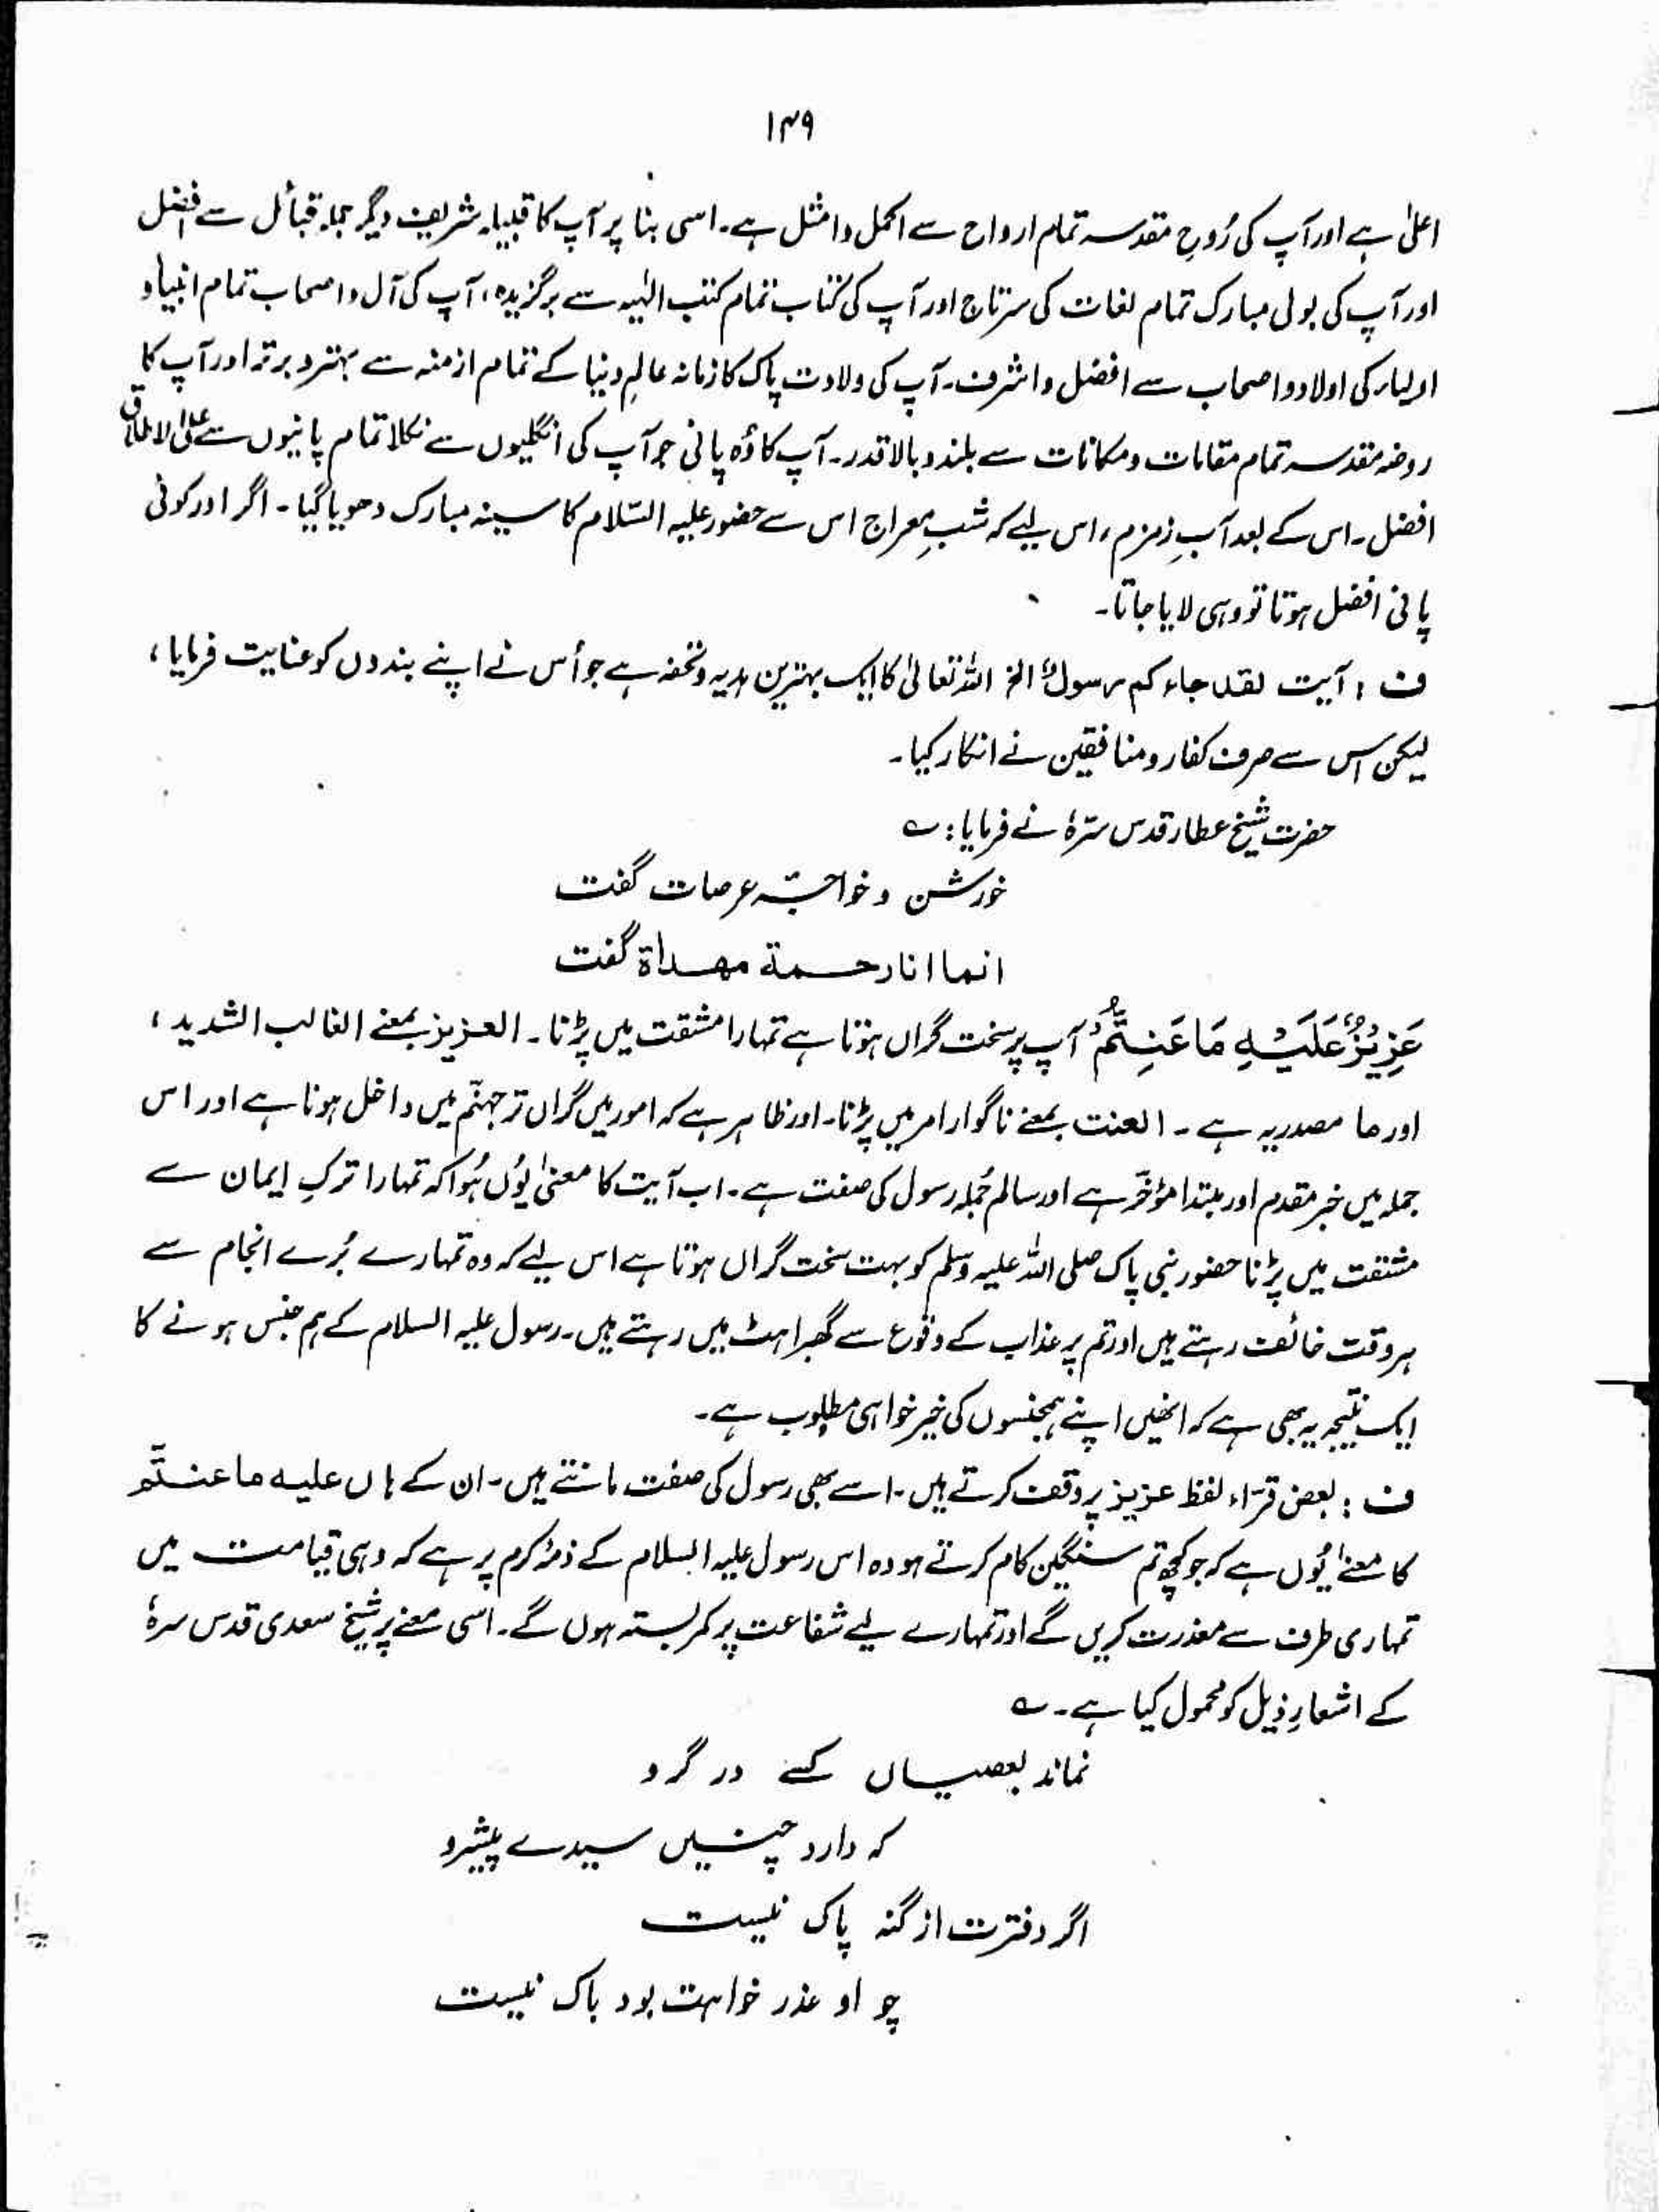 ۱۴۹
اعلیٰ ہے اور آپ کی رُوحِ مقدسہ تمام ارواح سے اکمل و امثل ہے۔ اسی بنا پر آپ کا قبیلہ شریف دیگر جملہ قبائل سے افضل
اور آپ کی بولی مبارک تمام لغات کی سرتاج اور آپ کی کتاب تمام کتب الٰہیہ سے برگزیدہ، آپ کی آل و اصحاب تمام انبیاء و
اولیاء کی اولاد و اصحاب سے افضل و اشرف۔ آپ کی ولادت پاک کا زمانہ عالمِ دنیا کے تمام ازمنہ سے بہتر و برتر اور آپ کا
روضہ مقدسہ تمام مقامات و مکانات سے بلند و بالا قدر۔ آپ کا وُہ پانی جو آپ کی انگلیوں سے نکلا تمام پانیوں سے علی الاطلاق
افضل۔ اس کے بعد آبِ زمزم، اس لیے کہ شبِ معراج اس سے حضور علیہ السّلام کا سینہ مبارک دھویا گیا۔ اگر اور کوئی
پانی افضل ہوتا تو وہی لایا جاتا۔
ف : آیت لقد جاءکم رسولٌ الخ اللہ تعالیٰ کا ایک بہترین ہدیہ و تحفہ ہے جو اُس نے اپنے بندوں کو عنایت فرمایا،
لیکن اس سے صرف کفار و منافقین نے انکار کیا۔
حضرت شیخ عطار قدس سرّہٗ نے فرمایا : ؎
خورشن و خواجۂ عرصات گفت
انما انا رحمة مهداة گفت
عَزِیْزٌ عَلَیْہِ مَا عَنِتُّمْ آپ پر سخت گراں ہوتا ہے تمہارا مشقت میں پڑنا۔ العزیز بمعنے الغالب الشدید،
اور ما مصدریہ ہے۔ العنت بمعنے ناگوار امر میں پڑنا۔ اور ظاہر ہے کہ امور میں گراں تر جہنّم میں داخل ہونا ہے اور اس
جملہ میں خبر مقدم اور مبتدا مؤخّر ہے اور سالم جُملہ رسول کی صفت ہے۔ اب آیت کا معنیٰ یُوں ہُوا کہ تمہارا ترکِ ایمان سے
مشقت میں پڑنا حضور نبی پاک صلی اللہ علیہ وسلم کو بہت سخت گراں ہوتا ہے اس لیے کہ وہ تمہارے بُرے انجام سے
ہر وقت خائف رہتے ہیں اور تم پر عذاب کے وقوع سے گھبراہٹ میں رہتے ہیں۔ رسول علیہ السلام کے ہم جنس ہونے کا
ایک نتیجہ یہ بھی ہے کہ انھیں اپنے ہمجنسوں کی خیر خواہی مطلوب ہے۔
ف : بعض قرّاء لفظ عزیز پر وقف کرتے ہیں۔ اسے بھی رسول کی صفت مانتے ہیں۔ ان کے ہاں علیہ ما عنتّم
کا معنےٰ یُوں ہے کہ جو کچھ تم سنگین کام کرتے ہو وہ اس رسول علیہ السلام کے ذمۂ کرم پر ہے کہ وہی قیامت میں
تمہاری طرف سے معذرت کریں گے اور تمہارے لیے شفاعت پر کمربستہ ہوں گے۔ اسی معنے پر شیخ سعدی قدس سرہٗ
کے اشعارِ ذیل کو محمول کیا ہے۔ ؎
نماند بعصیاں کسے در گرو
کہ دارد چنیں سیدے پیشرو
اگر دفترت از گنہ پاک نیست
چو او عذر خواہت بود باک نیست